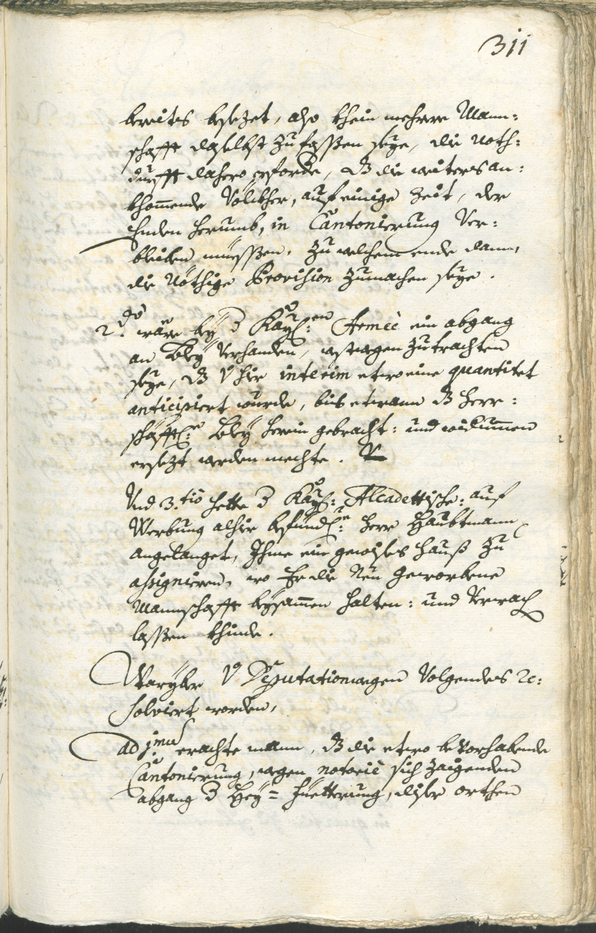 311
bereits besezet, also khein mehrere Mann=
schafft daselbst zu fassen seye, die Noth=
durfft dahero erforde, dz die weiters an=
khommende Völckher, auf einige Zeit, der
Enden herumb, in Cantonierung Ver=
bleiben müessen, zu welchem ende dann,
die Nöthige Provision zumachen seye.
2do wäre bey d Kayl: Armee ein abgang
an Bley Verhanden, zutrachten
seye, dz interim etwo eine quantitet
anticipiert wurde, bis etwann dz herr=
schafftl: Bley herein gebracht: und
ersezt werden mechte.
Und 3.tio hette d Kayl: Alcadettische: auf
Werbung alhie befindl: herr Haubtmann
angelanget, Ihme ein gewises Hauß zu
assignieren, wo Er die Neu Geworbene
Mannschafft beysammen halten: und Verwach
lassen khinde.
Yber Deputation wegen Volgendes re:
solviert worden,
ad jmum erachte mann, dz die etwo bevorhabende
Cantonierung, wegen notorie sich zaigenden
abgang d Hey= Fuetterung, diser orthen